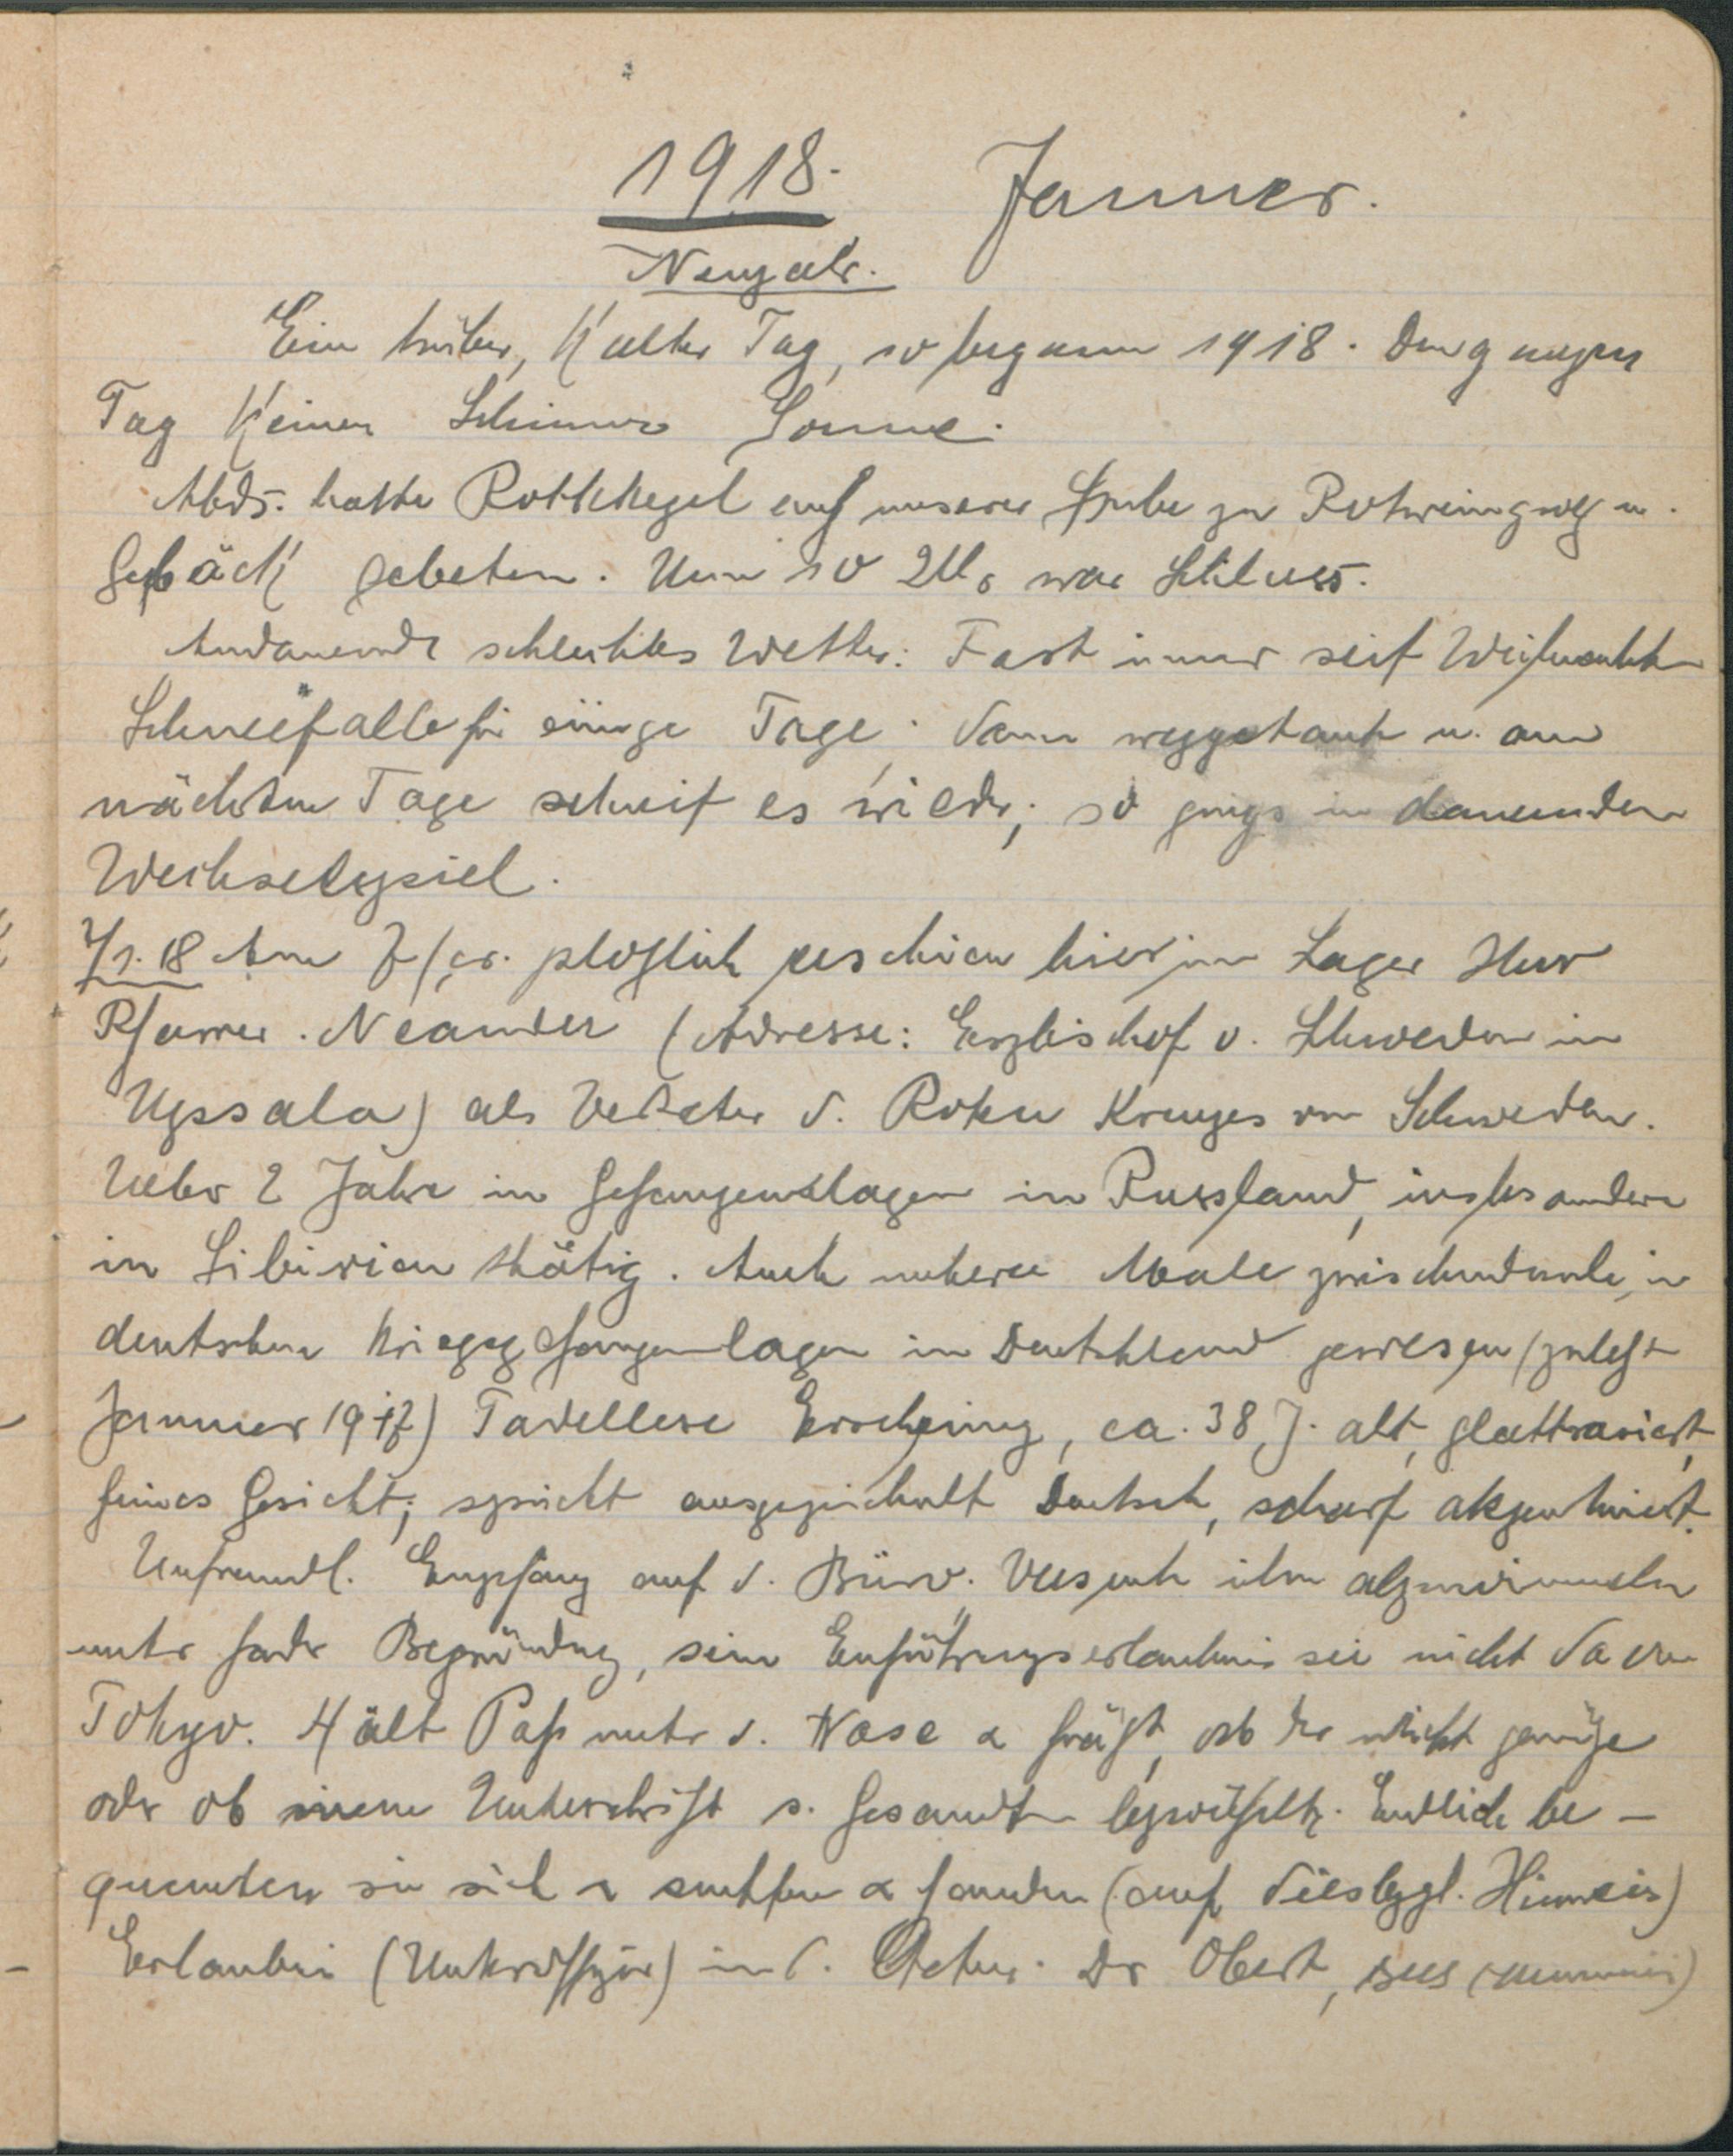 1918. Januar.
Neujahr.
Ein trüber, kalter Tag, so begann 1918. Den ganzen
Tag keinen Schimmer Sonne.
Abds. hatte Rottkegel auf unserer Stube zu Rotweingrog u.
Gebäck gebeten. Um 10 Uhr war Schluss.
Andauernde schlechtes Wetter. Fast immer seit Weihnachten
Schneefälle für einige Tage; dann weggetaut u. am
nächsten Tage schneit es wieder; so gings in dauernden
Wechselspiel.
7/1.18 Am 7/cr. plötzlich erschien hier im Lager Herr
Pfarrer Neander (Adresse: Erzbischof v. Schweden in
Upssala) als Vertreter d. Roten Kreuzes von Schweden.
Ueber 2 Jahre in Gefangenenlagern in Russland, insbesondere
in Sibirien thätig. Auch mehrere Male zwischendurch in
deutschen Kriegsgefangenenlagern in Deutschland gewesen (zuletzt
Januar 1917) Tadellose Erscheinung, ca. 38 J. alt, glattrasiert,
feines Gesicht; spricht ausgezeichnet Deutsch, scharf akzentuiert.
Unfreundl. Empfang auf d. Büro. Versuch ihn abzuwimmeln
unter fader Begründung, seine Einführungserlaubnis sei nicht da von
Tokyo. Hält Paß unter d. Nase & frägt, ob der nicht genüge
oder ob man Unterschrift s. Gesandten bezweifelte. Endlich be-
quemten sie sich & suchten & fanden (auf diesbezgl. Hinweis)
Erlaubnis (Unteroffizier) in d. Akten. Der Oberst,